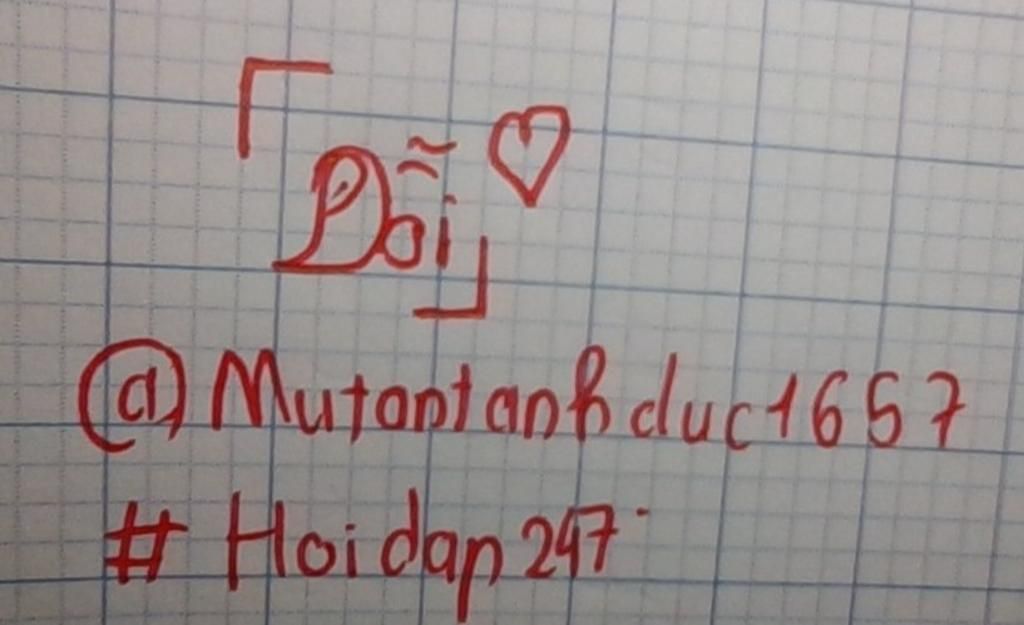 「Dỗi」♡
@Mutantanhduc1657
#Hoidap247